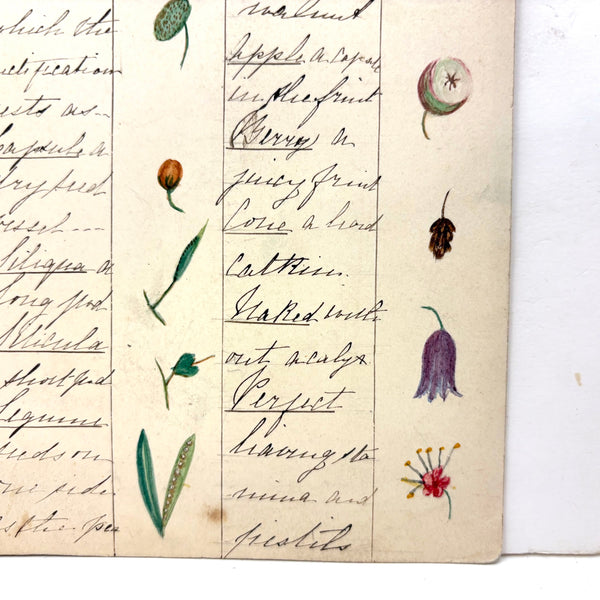 which the
uctification
ests as--
Capsule a
dry seed
vessel---
Siliqua a
long pod
Silicula
a short pod
Legume
seeds on
one side
as the pea
walnut
apple a capsule
in the fruit
(Berry) a
juicy fruit
Cone a hard
catkin.
Naked with
out a calyx
Perfect
having sta
mina and
pistils